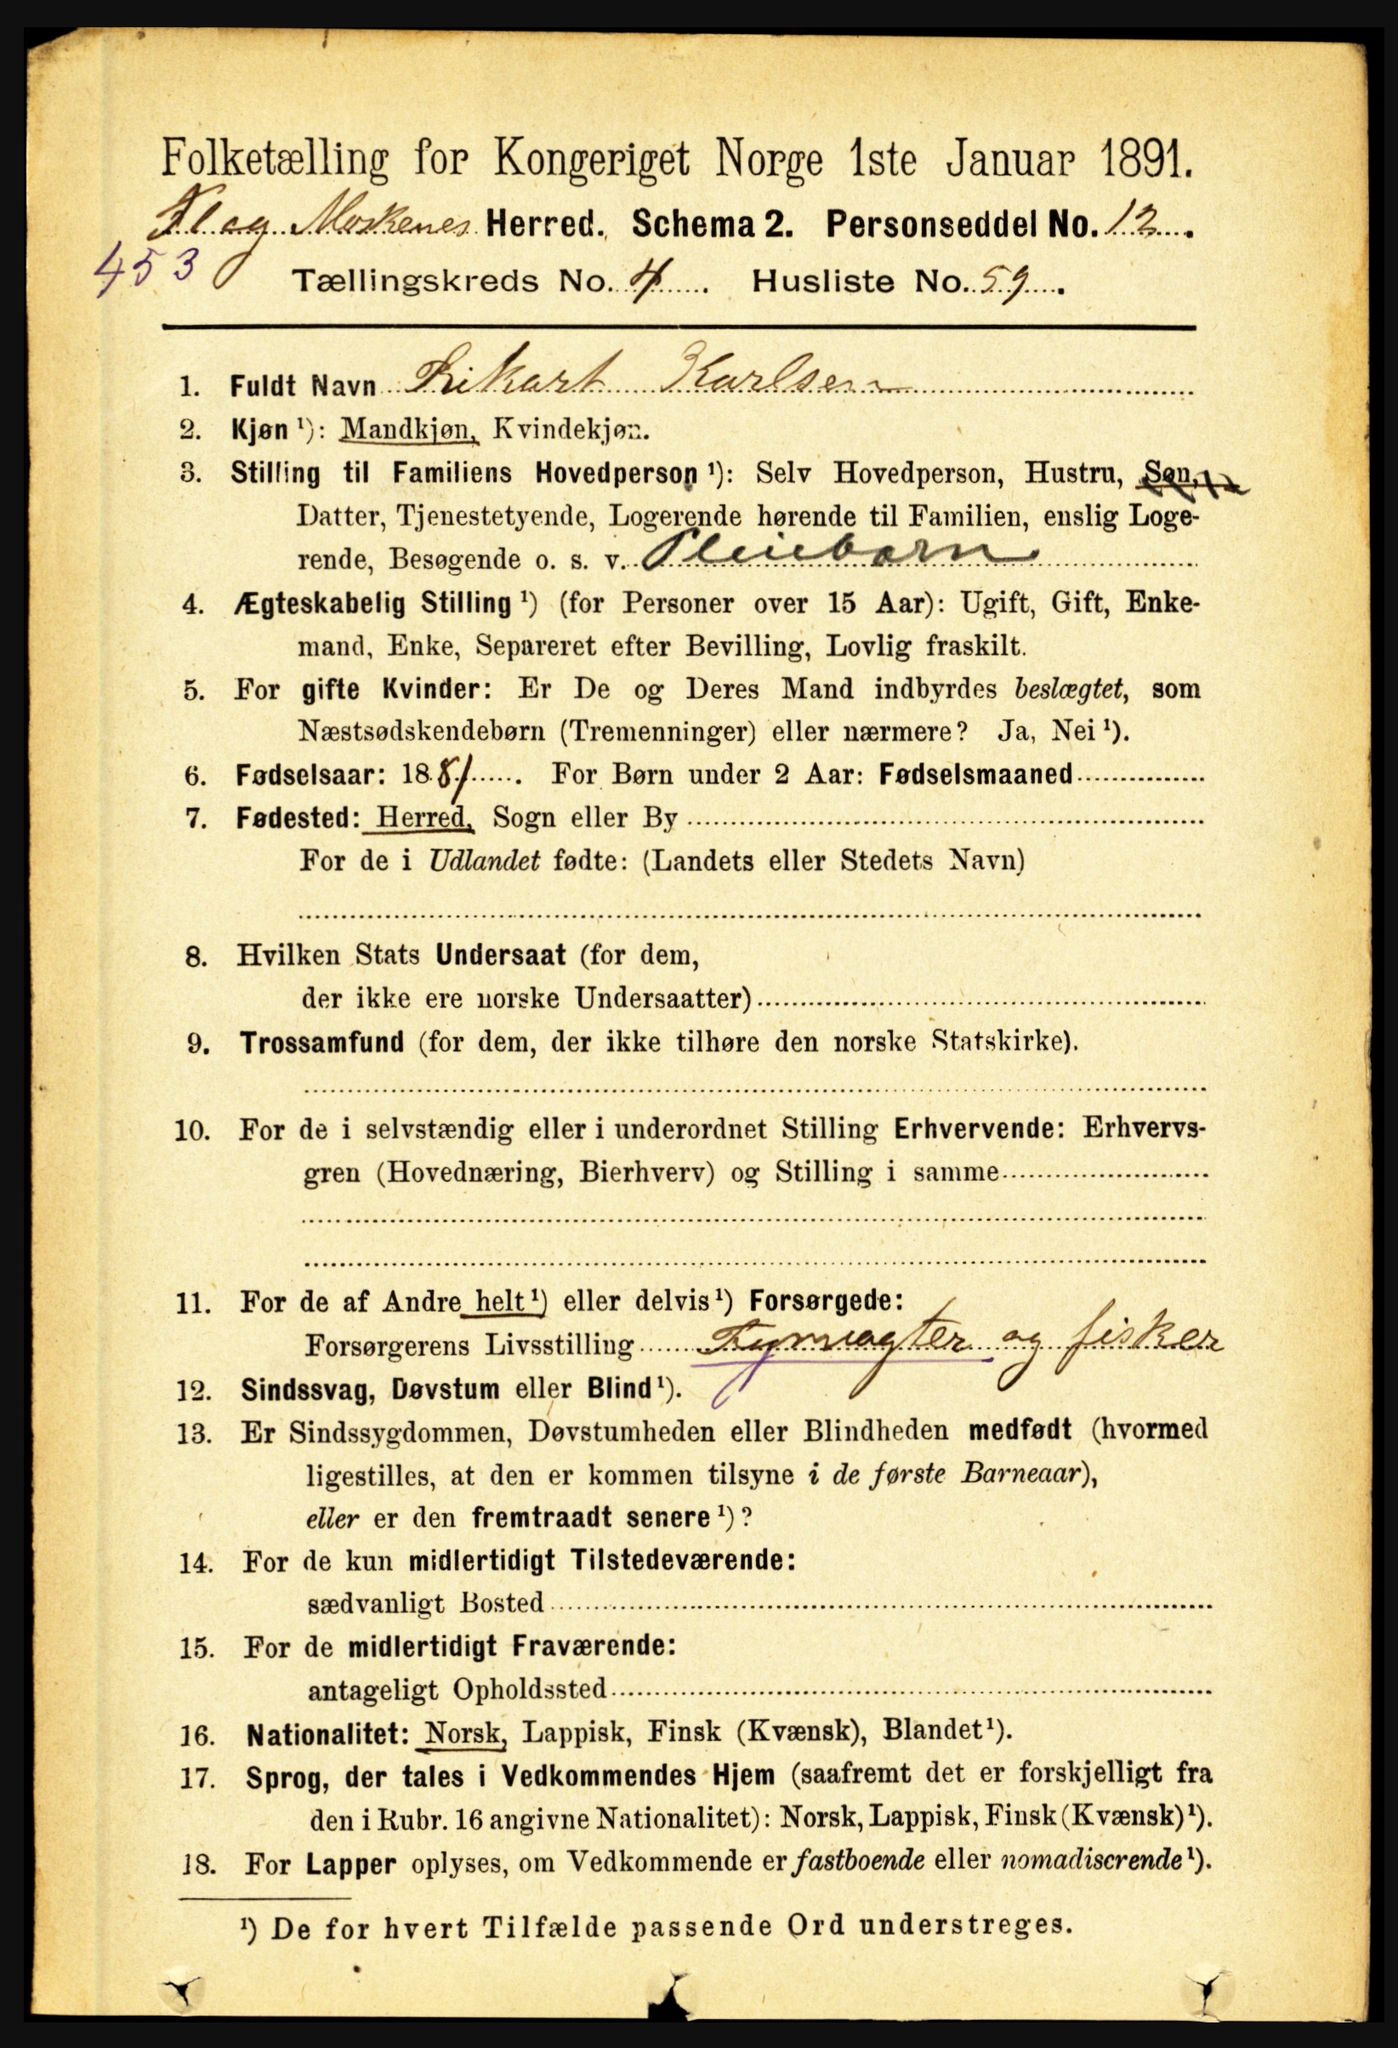 Folketælling for Kongeriget Norge 1ste Januar 1891.
Fl og Moskenes Herred. Schema 2. Personseddel No. 12.
453
Tællingskreds No. 4. Husliste No. 59.
1. Fuldt Navn Rikart Karlsen
2. Kjøn ¹): Mandkjøn, Kvindekjøn.
3. Stilling til Familiens Hovedperson ¹): Selv Hovedperson, Hustru, Søn,
Datter, Tjenestetyende, Logerende hørende til Familien, enslig Loge-
rende, Besøgende o. s. v. Pleiebarn
4. Ægteskabelig Stilling ¹) (for Personer over 15 Aar): Ugift, Gift, Enke-
mand, Enke, Separeret efter Bevilling, Lovlig fraskilt.
5. For gifte Kvinder: Er De og Deres Mand indbyrdes beslægtet, som
Næstsødskendebørn (Tremenninger) eller nærmere? Ja, Nei ¹).
6. Fødselsaar: 1881. For Børn under 2 Aar: Fødselsmaaned
7. Fødested: Herred, Sogn eller By
For de i Udlandet fødte: (Landets eller Stedets Navn)
8. Hvilken Stats Undersaat (for dem,
der ikke ere norske Undersaatter)
9. Trossamfund (for dem, der ikke tilhøre den norske Statskirke).
10. For de i selvstændig eller i underordnet Stilling Erhvervende: Erhvervs-
gren (Hovednæring, Bierhverv) og Stilling i samme
11. For de af Andre helt ¹) eller delvis ¹) Forsørgede:
Forsørgerens Livsstilling Fyrvogter og fisker
12. Sindssvag, Døvstum eller Blind ¹).
13. Er Sindssygdommen, Døvstumheden eller Blindheden medfødt (hvormed
ligestilles, at den er kommen tilsyne i de første Barneaar),
eller er den fremtraadt senere ¹)?
14. For de kun midlertidigt Tilstedeværende:
sædvanligt Bosted
15. For de midlertidigt Fraværende:
antageligt Opholdssted
16. Nationalitet: Norsk, Lappisk, Finsk (Kvænsk), Blandet ¹).
17. Sprog, der tales i Vedkommendes Hjem (saafremt det er forskjelligt fra
den i Rubr. 16 angivne Nationalitet): Norsk, Lappisk, Finsk (Kvænsk) ¹).
18. For Lapper oplyses, om Vedkommende er fastboende eller nomadiserende ¹).
¹) De for hvert Tilfælde passende Ord understreges.